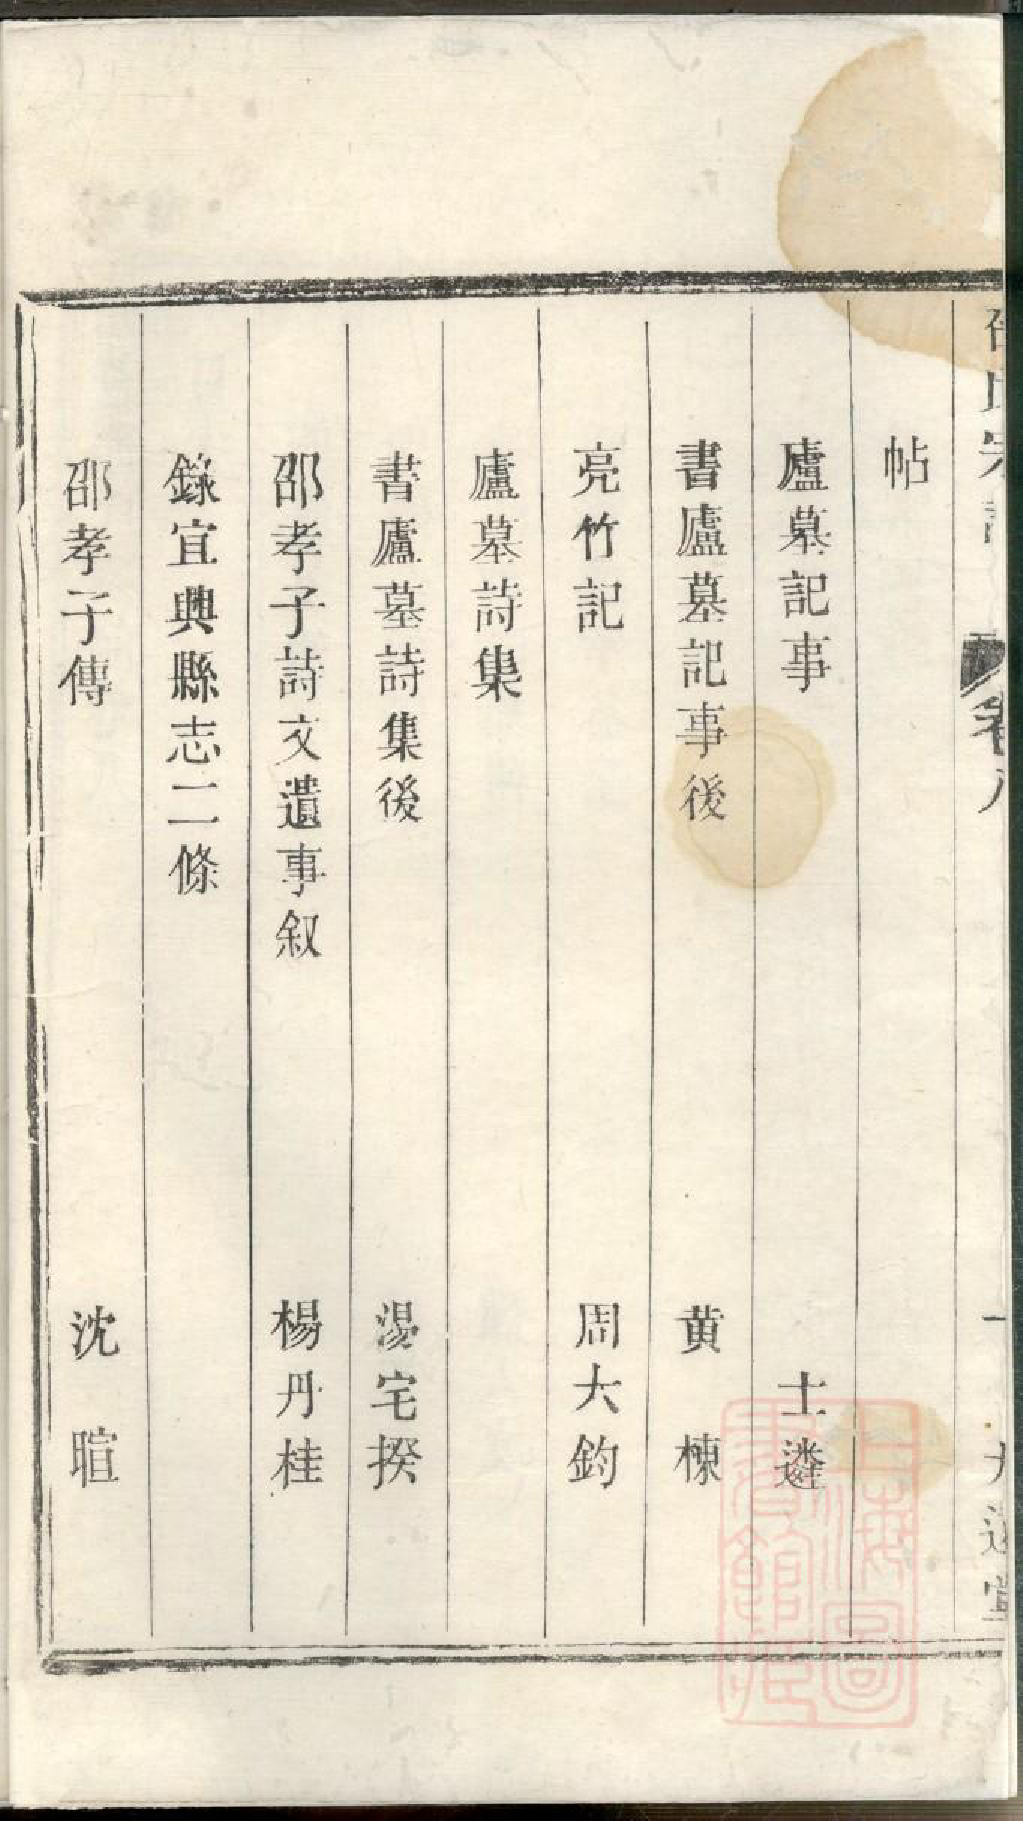 帖
廬墓記事 士遴
書廬墓記事後 黄棟
亮竹記 周大鈞
廬墓詩集
書廬墓詩集後 湯宅揆
邵孝子詩文遺事叙 楊丹桂
錄宜興縣志二條
邵孝子傳 沈暄
上海圖書館藏